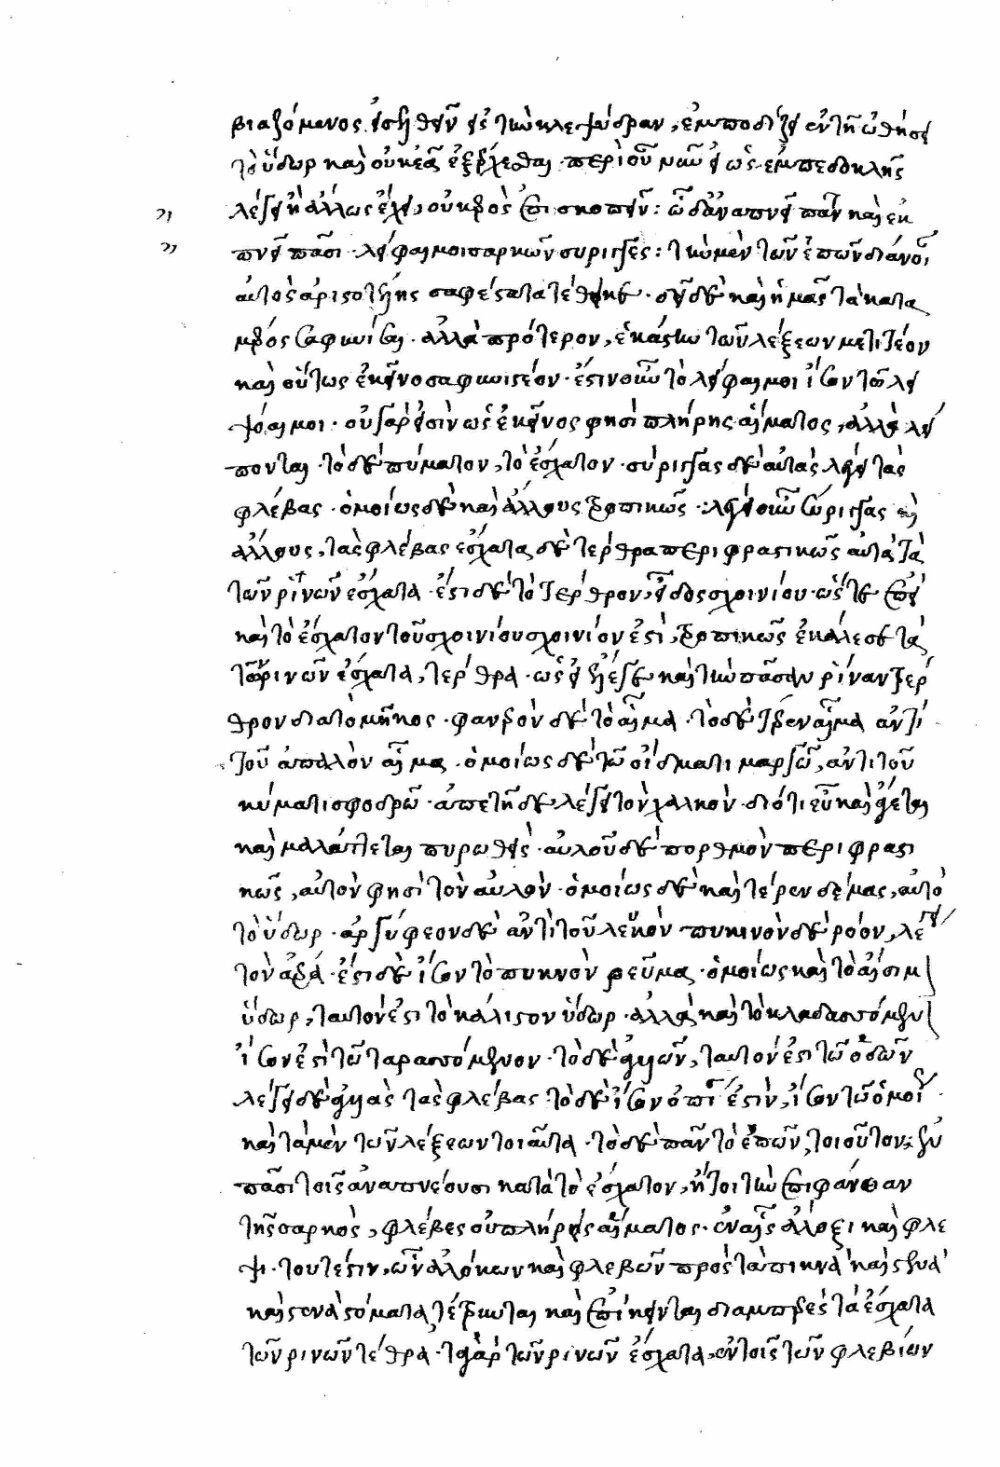 βιαζόμενος εἰσελθεῖν εἰς τὴν κλεψύδραν, ἐμποδίζει ἐν τῇ ὠθήσει
τὸ ὕδωρ καὶ οὐκ ἐᾷ ἐξέρχεσθαι· περὶ οὗ μῶν εἰ ὡς ἐμπεδοκλῆς
λέγει ἢ ἄλλως ἔχει, οὐ καιρὸς ἐπισκοπεῖν: ὧδ' ἀναπνεῖ πάντα καὶ ἐκ
πνεῖ πᾶσι· λίφαιμοι σαρκῶν σύριγγες: τὴν μὲν τῶν ἐπῶν διάνοιαν
αὐτὸς ἀριστοτέλης σαφέστατα τέθεικε· δεῖ δὲ καὶ ἡμᾶς τὰ κατὰ
μέρος σαφηνίσαι· ἀλλὰ πρότερον, ἑκάστην τῶν λέξεων μετιτέον
καὶ οὕτως ἐκεῖνο σαφηνιστέον· ἔστιν οὖν τὸ λίφαιμοι ἴσον τῷ λεί
ψαιμοι· οὐ γάρ εἰσιν ὡς ἐκεῖνος φησὶ πλήρης αἵματος, ἀλλὰ λεί
πονται· τὸ δὲ πύματον, τὸ ἔσχατον· σύριγγας δὲ αὐτὰς λέγει τὰς
φλέβας· ὁμοίως δὲ καὶ ἄλλους τροπικῶς· λέγει οὖν σύριγγας καὶ
ἄλλους, τὰς φλέβας ἔσχατα δὲ τέρθρα περιφραστικῶς αὐτὰ τὰ
τῶν ῥινῶν ἔσχατα· ἔστι δὲ τὸ τέρθρον, εἶδος σχοινίου· ὥστε ἐπεὶ
καὶ τὸ ἔσχατον τοῦ σχοινίου σχοινίον ἐστί, τροπικῶς ἐκάλεσε τὰ
τῶν ῥινῶν ἔσχατα, τέρθρα· ὡς εἰ ἔλεγε καὶ τὴν πᾶσαν ῥίναν τέρ
θρον διὰ τὸ μῆκος· φανερὸν δὲ τὸ αἷμα· τὸ δὲ τέρεν αἷμα ἀντὶ
τοῦ ἁπαλὸν αἷμα· ὁμοίως δὲ τῶ οἴδματι μαργῶ, ἀντὶ τοῦ
κύματι σφοδρῶ· ἀπετῆ δὲ λέγει τὸν χαλκὸν· διότι εὖ καὶ χεῖται
καὶ μαλάττεται πυρωθείς· αὐλοῦ δὲ πορθμὸν περιφραστι
κῶς, αὐτὸν φησὶ τὸν αὐλὸν· ὁμοίως δὲ καὶ τέρεν δέμας, αὐτὸ
τὸ ὕδωρ· ἀργύφεον δὲ ἀντὶ τοῦ λευκόν· πυκινὸν δὲ ῥόον, λεπ
τὸν ἀέρα· ἔστι δὲ ἴσον τὸ πυκνὸν ῥεῦμα· ὁμοίως καὶ τὸ αἴσιμον
ὕδωρ, ταυτόν ἐστι τὸ κάλλιστον ὕδωρ· ἀλλὰ καὶ τὸ κλαδασσόμενον
ἴσον ἐστὶ τῶ ταρασσόμενον· τὸ δὲ γυιῶν, ταυτόν ἐστι τῶ ὁδῶν
λέγει δὲ γυιὰς τὰς φλέβας· τὸ δὲ ἴσον ὀπίσω ἐστὶν, ἴσον τῶ ὁμοίως·
καὶ τὰ μὲν τῶν λέξεων τοιαῦτα· τὸ δὲ πᾶν τὸ ἐπῶν, τοιοῦτον·
πᾶσι τοῖς ἀναπνέουσι κατὰ τὸ ἔσχατον, ἤτοι τὴν ἐπιφάνειαν
τῆς σαρκὸς, φλέβες οὐ πλήρης αἵματος· ἐν αἷς ἄλοξι καὶ φλε
ψὶ· τουτέστιν, ὧν ἀλόκων καὶ φλεβῶν πρὸς τὰ πυκνὰ καὶ στενὰ
καὶ στενὰ στόματα τέτρηνται καὶ ἐπίκεινται διαμπερὲς τὰ ἔσχατα
τῶν ῥινῶν τέθρα· τὰ γὰρ τῶν ῥινῶν ἔσχατα, ἐν τοῖς τῶν φλεβίων